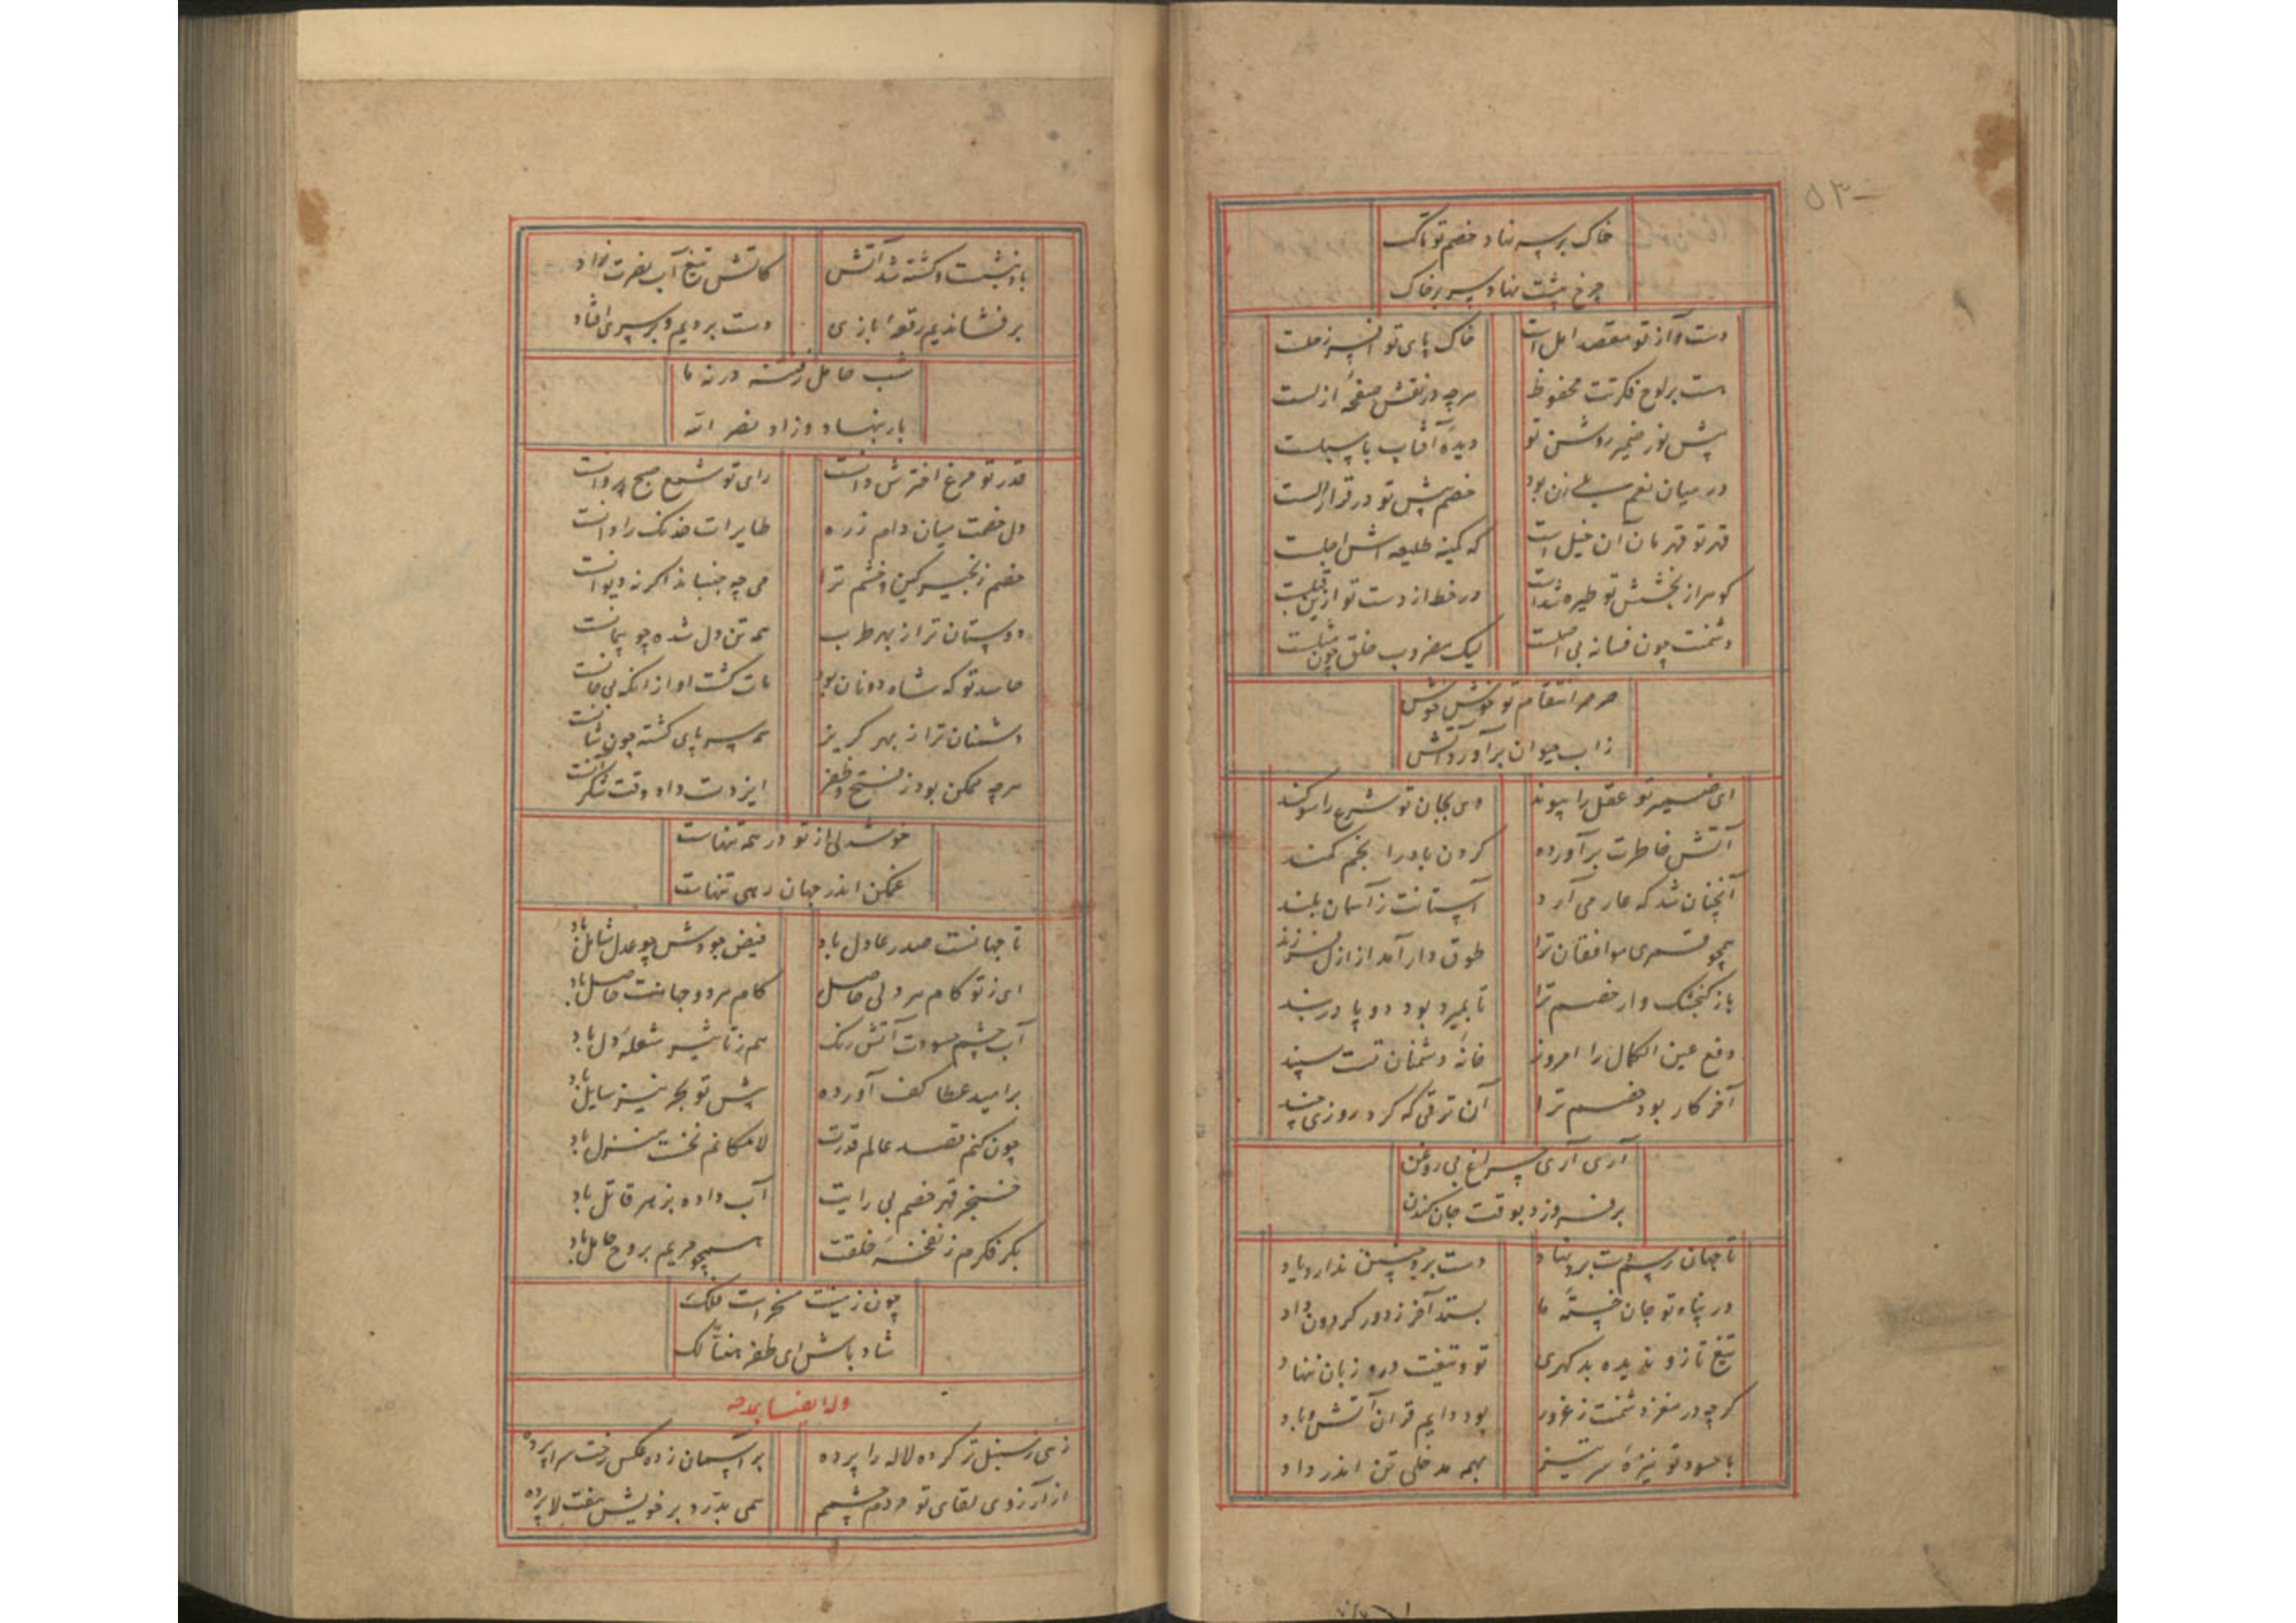 خاک بر سر نهاد خصم تو تاک
چرخ پشت نهاد سر بر خاک
دست و آز تو مقصد امل است خاک پای تو افسر زحلست
هست بر لوح فکرتت محفوظ هرچه در نقش صفحهٔ ازلست
پیش نور ضمیر روشن تو دیدهٔ آفتاب با سبلست
در میان نعم بلی زان بود خصم پیش تو در قرار الست
قهر تو قهرمان آن خیل است که کمینه طلیعه اش اجلست
گوهر از بخشش تو طیره شدست در خط از دست تو ازین قبلست
دشمنت چون فسانه بی اصلست لیک مضروب خلق چون مثلست
صرصر انتقام تو خوش خوش
زاب حیوان برآورد آتش
ای ضمیر تو عقل را پیوند وی بجان تو شرع را سوکند
آتش خاطرت برآورده کردن باد را بخم کمند
آنچنان شد که عار می آرد آستانت ز آسمان بلند
همچو قمری موافقان ترا طوق دار آمد از ازل فرزند
باز کنجشک وار خصم ترا تا بمیرد بود دو پا در بند
دفع عین الکمال را امروز خانهٔ دشمنان تست سپند
آخر کار بود خصم ترا آن ترقی که کرد روزی چند
آری آری چراغ بی روغن
برفروزد بوقت جان کندن
تا جهان رسم دست برد نهاد دست بردی چنین ندارد یاد
در پناه تو جان خستهٔ ما بستد آخر ز دور کردون داد
تیغ تا زو ندیده بد کهری تو و تیغت دره زبان ننهاد
کرچه در مغز دشمنت ز غرور بود دایم قران آتش و باد
با حسود تو نیزهٔ سرتیز بهمه مدخلی تن اندر داد
باد بنشست و کشته شد آتش کاتش تیغ آب نصرت زاد
برفشاندیم رقعرا بازی دست بردیم و بر سری افتاد
شب حامل ز فتنه در نه ماه
بار بنهاد و زاد نصر الله
قدر تو مرغ اخترش دانست رای تو شمع صبح پروانست
دل خصمت میان دام زره طایرات خدنک را دانست
خصم زنجیر کین و خشم ترا می چه جنباند اکر نه دیوانست
دوستان ترا ز بهر طرب همه تن دل شده چو پیمانست
حاسد تو که شاه دونان بود مات کشت او از آنکه بی خانست
دشمنان ترا ز بهر کریز همه سر پای کشته چون شانست
هرچه ممکن بود ز فتح و ظفر ایزدت داد وقت شکرانست
خوشدلی از تو در همه تنهاست
غمکن اندر جهان رهی تنهاست
تا جهانست صدر عادل باد فیض جودش چو عدل شامل باد
ای ز تو کام هر دلی حاصل کام هر دو جهانت حاصل باد
آب چشم حسودت آتش رنک هم ز تاثیر شعلهٔ دل باد
بر امید عطا کف آورده پیش تو بحر نیز سایل باد
چون کنم قصد عالم قدرت لامکانم نخست منزل باد
خنجر قهر خصم بی رایت آب داده بزهر قاتل باد
بکر فکرم ز نفخهٔ خلقت همچو مریم بروح حامل باد
چون ز زینت مفخر است ملک
شاد باش ای ظفر هنیأ لک
وله ایضا یمدحه
زهی ز سنبل تر کرده لاله را پرده بر آسمان زده عکس رخت سراپرده
از آرزوی لقای تو مردم چشمم همی بدرد بر خویش هفت لا پرده